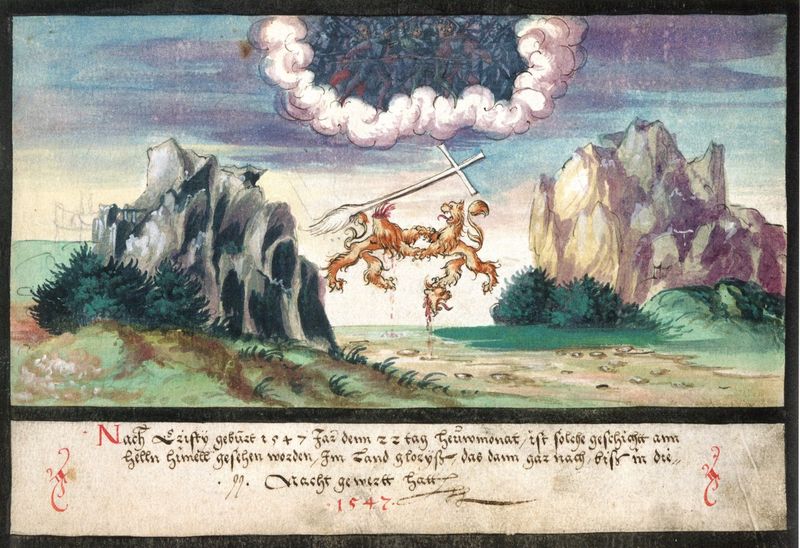 Nach Cristy geburt 1547 Jar denn 22 tag heuwmonat, ist solche geschicht am
helln himell gesehen worden, Im Land gloryß, das dann gar nach, biß in die
Nacht gewertt hatt
1547